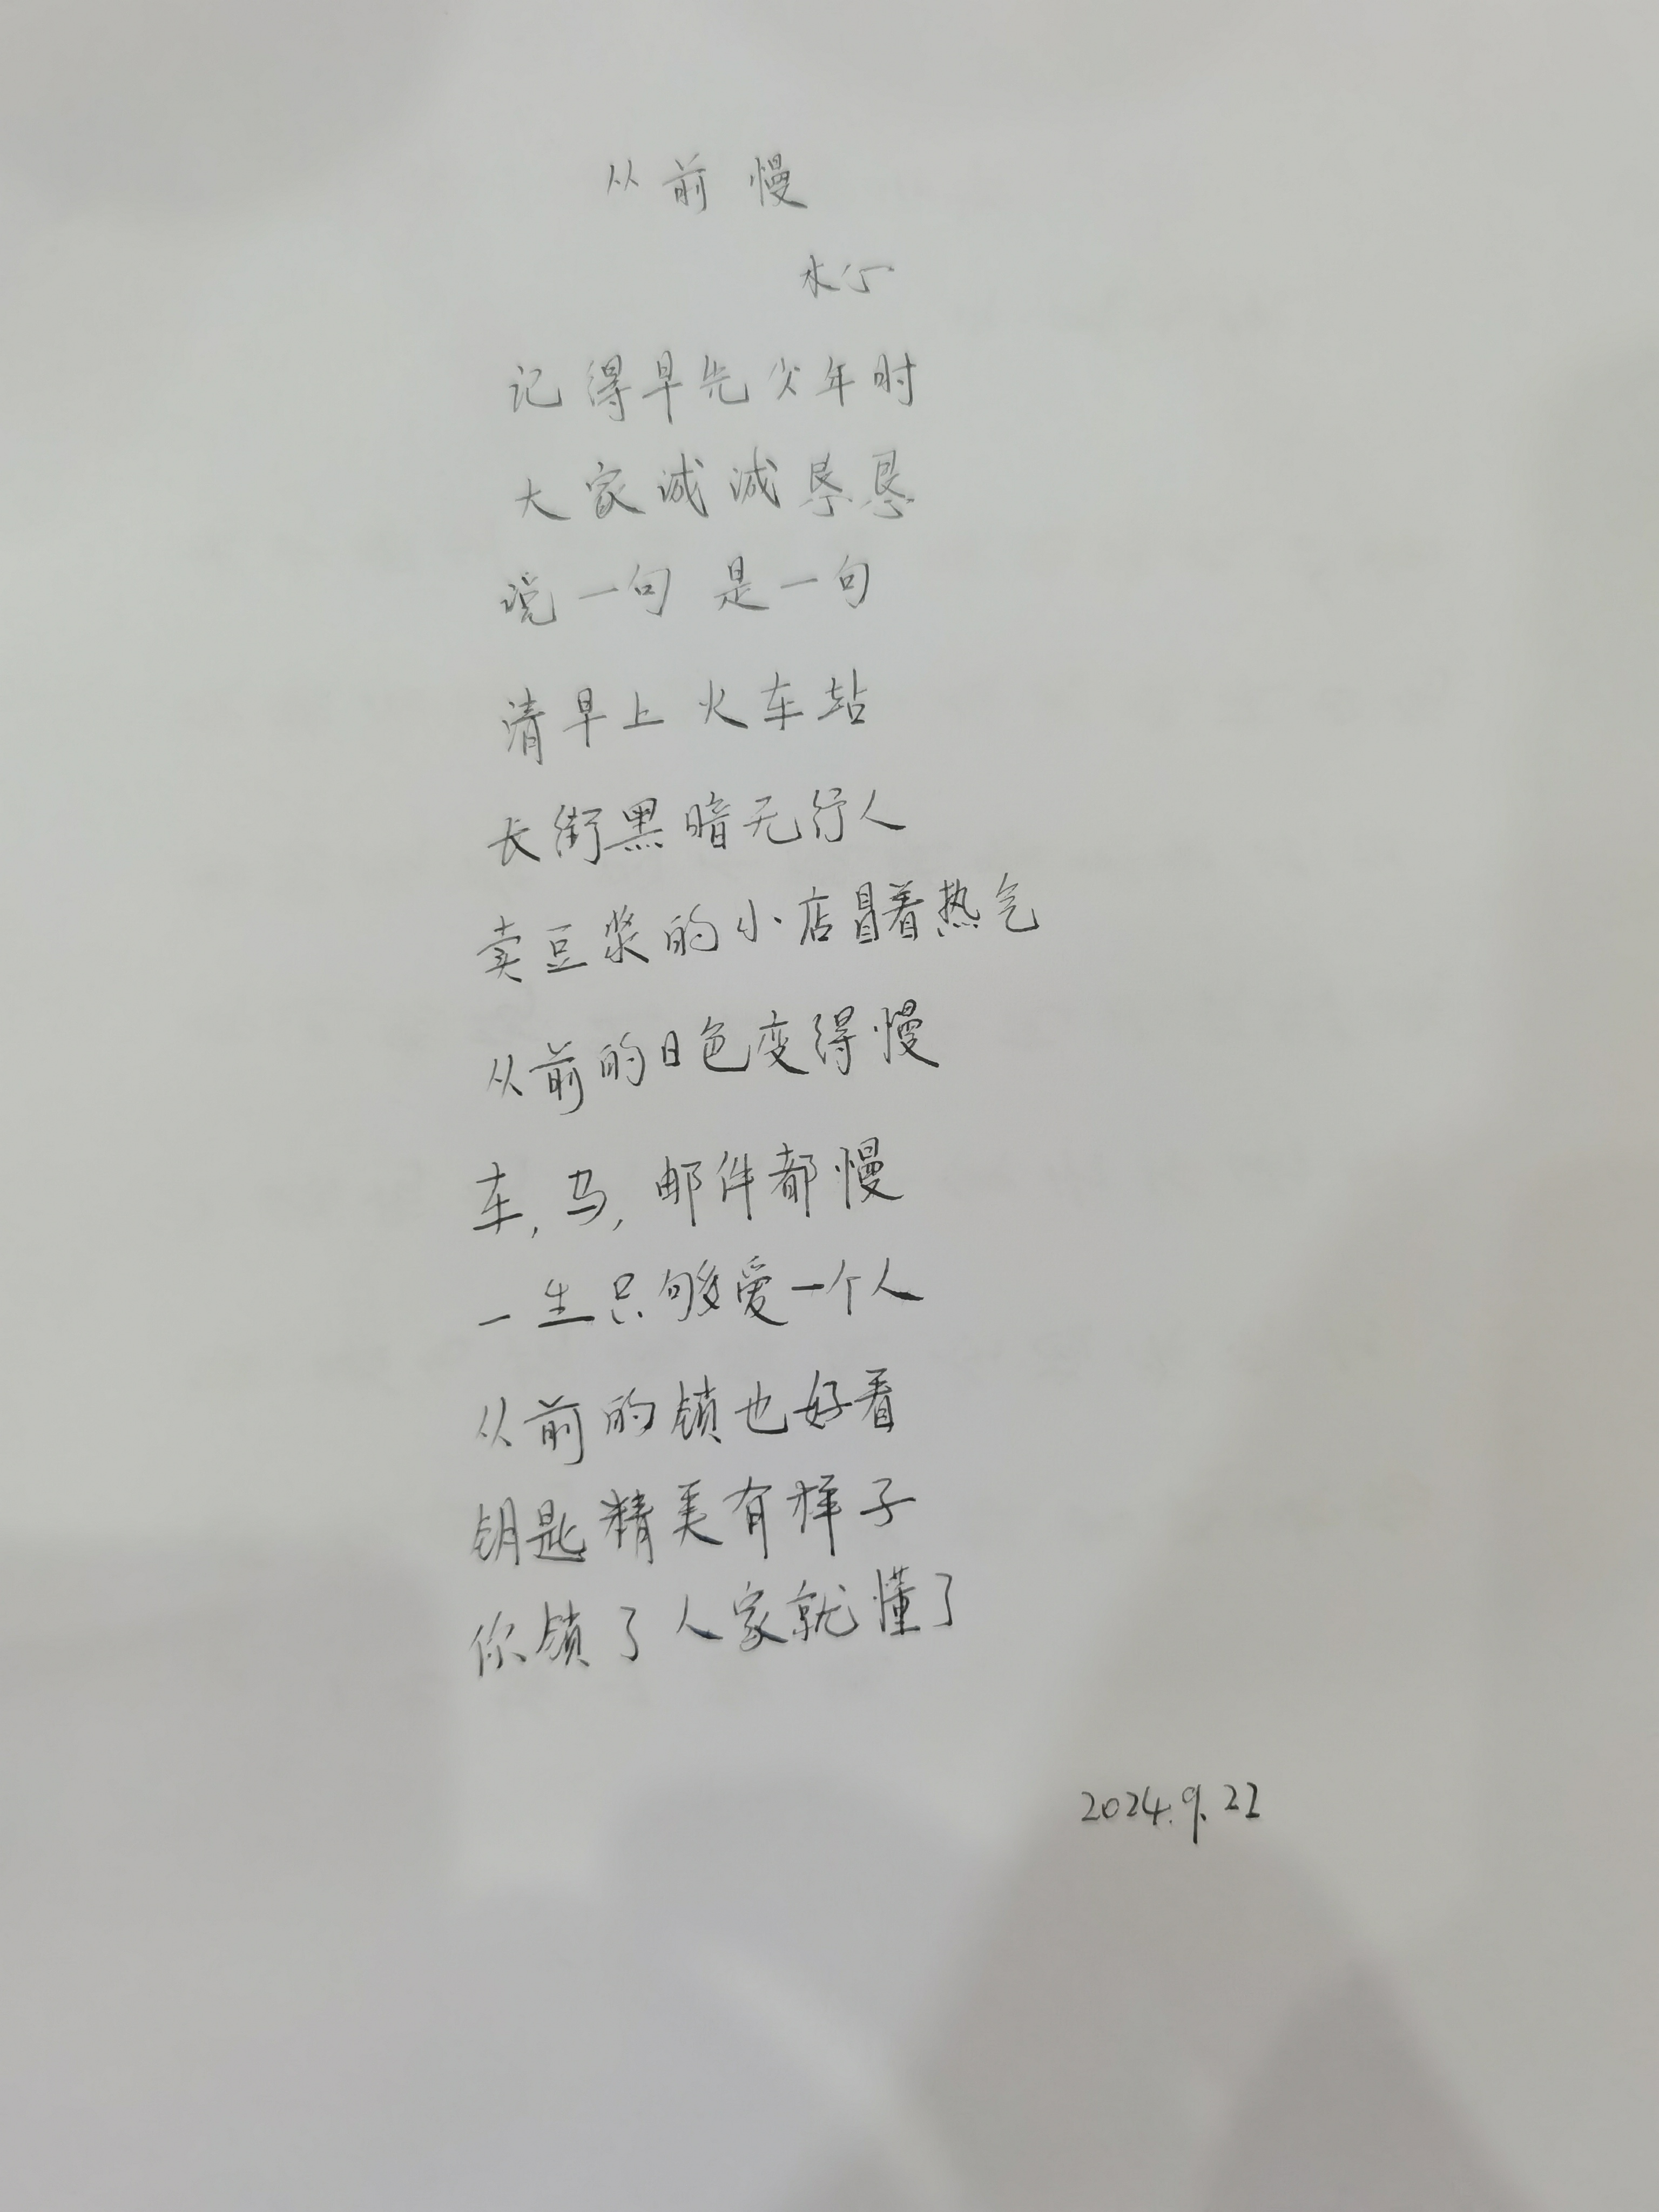 从前慢
木心
记得早先少年时
大家诚诚恳恳
说一句 是一句
清早上火车站
长街黑暗无行人
卖豆浆的小店冒着热气
从前的日色变得慢
车,马,邮件都慢
一生只够爱一个人
从前的锁也好看
钥匙精美有样子
你锁了人家就懂了
2024.9.22